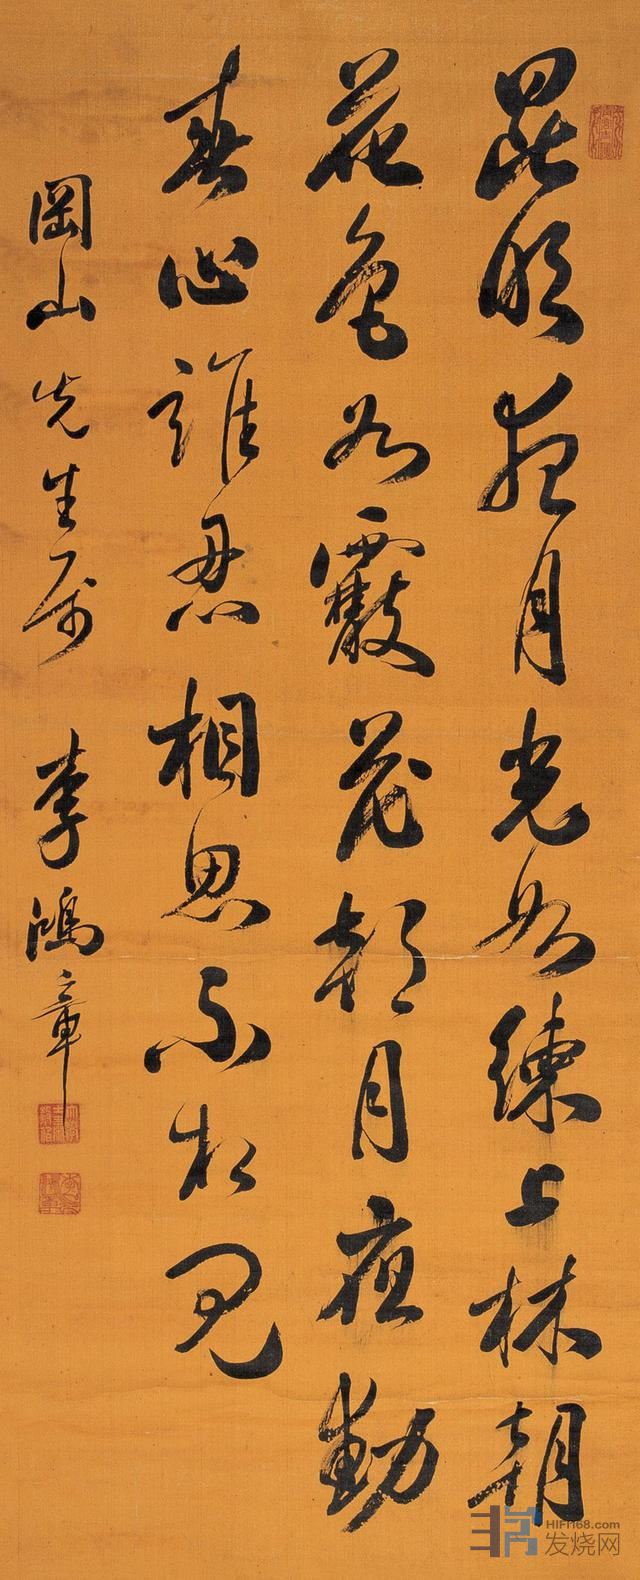 昆明夜月光如練上林朝
花色如霰花朝月夜動
春心誰忍相思不相見
岡山先生属 李鴻章
HIFI168.com
发烧网